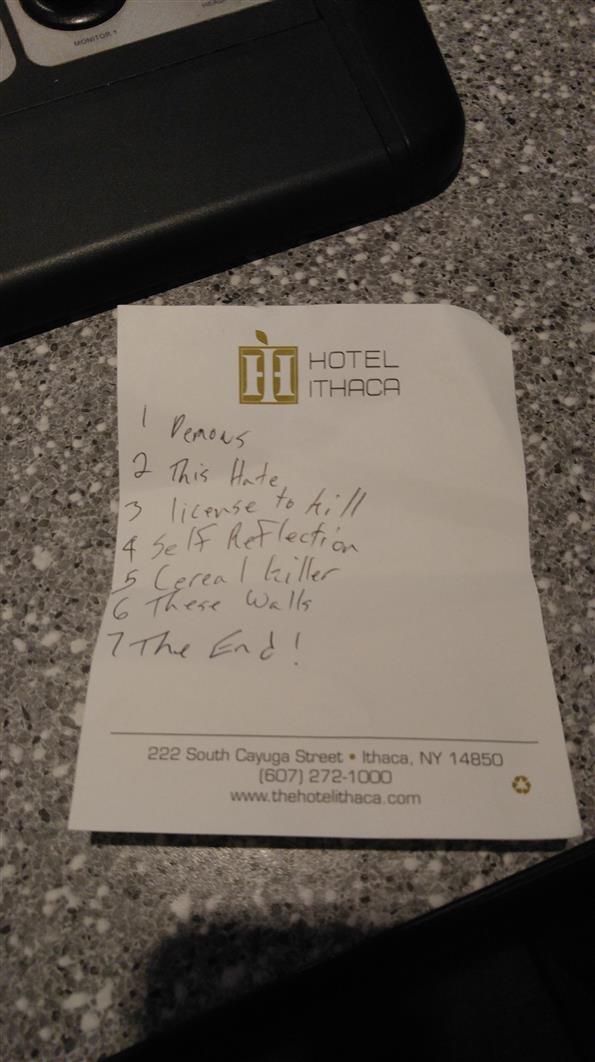 MONITOR 1
HOTEL
ITHACA
1 Demons
2 This Hate
3 license to kill
4 Self Reflection
5 Cereal killer
6 These Walls
7 The End!
222 South Cayuga Street • Ithaca, NY 14850
(607) 272-1000
www.thehotelithaca.com